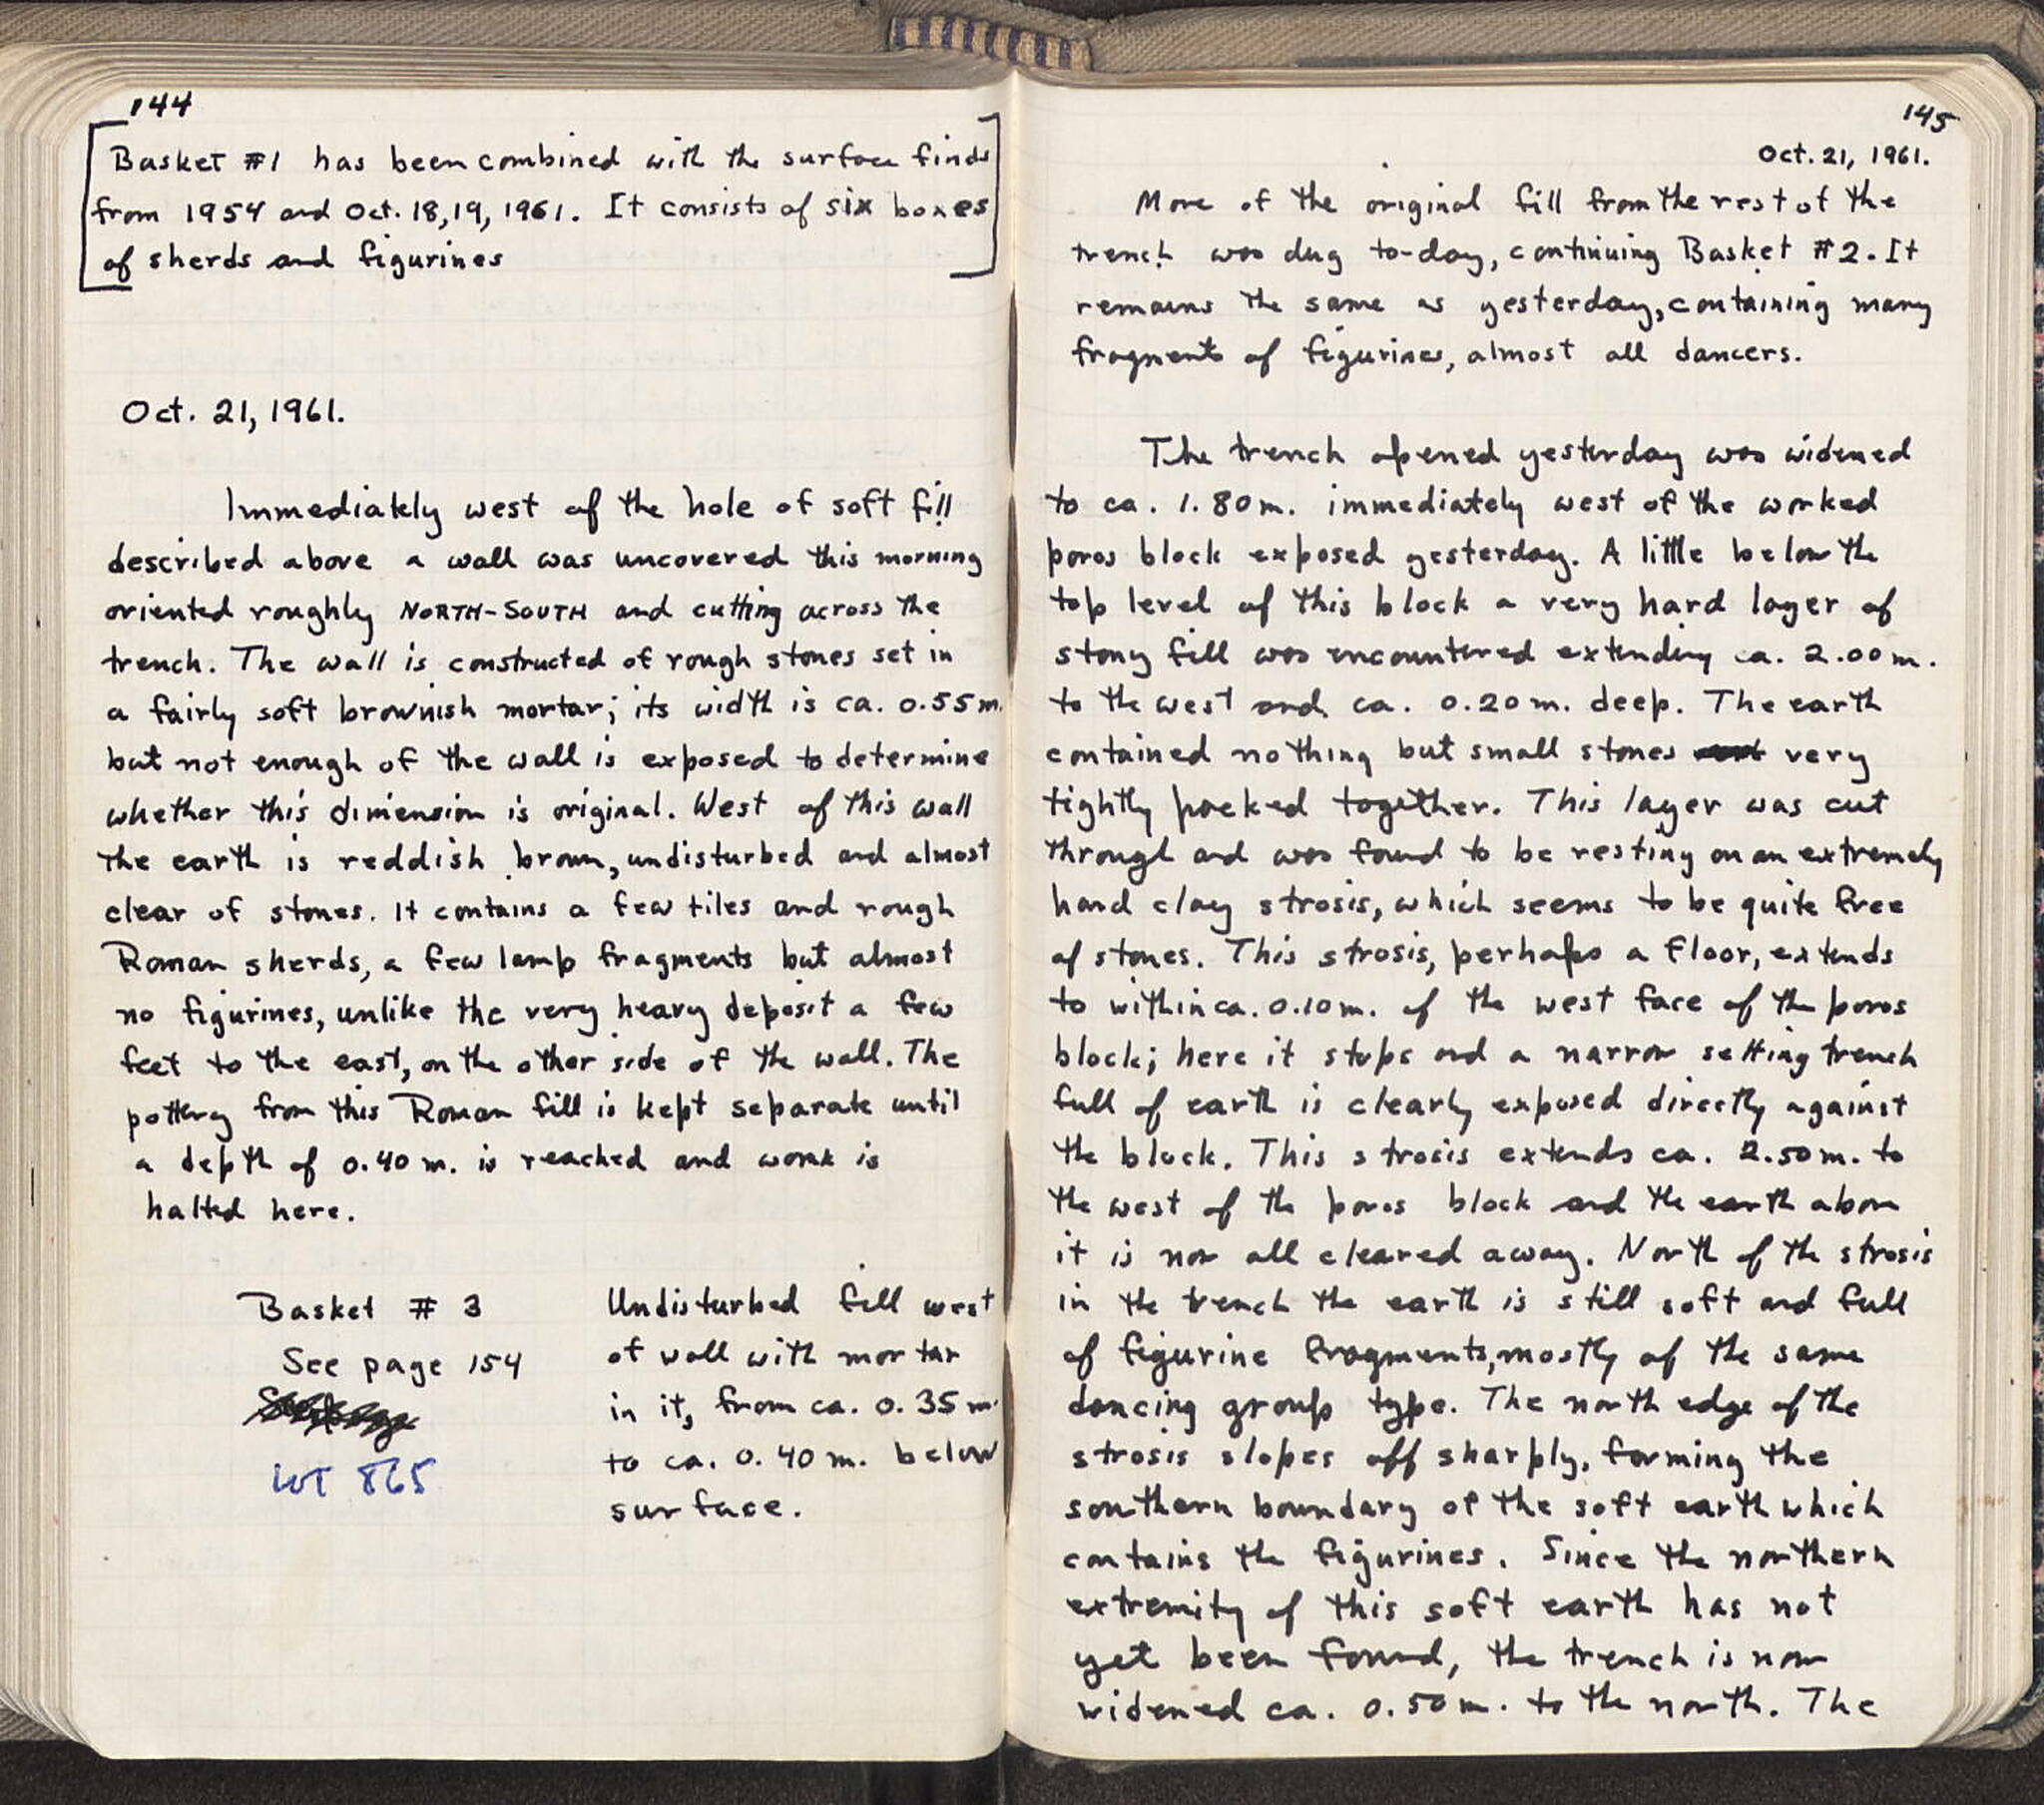 144
Basket #1 has been combined with the surface finds
from 1954 and Oct. 18,19, 1961. It consists of six boxes
of sherds and figurines
Oct. 21, 1961.
Immediately west of the hole of soft fill
described above a wall was uncovered this morning
oriented roughly NORTH-SOUTH and cutting across the
trench. The wall is constructed of rough stones set in
a fairly soft brownish mortar; its width is ca. 0.55m.
but not enough of the wall is exposed to determine
whether this dimension is original. West of this wall
the earth is reddish brown, undisturbed and almost
clear of stones. It contains a few tiles and rough
Roman sherds, a few lamp fragments but almost
no figurines, unlike the very heavy deposit a few
feet to the east, on the other side of the wall. The
pottery from this Roman fill is kept separate until
a depth of 0.40 m. is reached and work is
halted here.
Basket # 3
See page 154
LOT 865
Undisturbed fill west
of wall with mortar
in it, from ca. 0.35 m.
to ca. 0.40 m. below
surface.
145
Oct. 21, 1961.
More of the original fill from the rest of the
trench was dug to-day, continuing Basket #2. It
remains the same as yesterday, containing many
fragments of figurines, almost all dancers.
The trench opened yesterday was widened
to ca. 1.80m. immediately west of the worked
poros block exposed yesterday. A little below the
top level of this block a very hard layer of
stony fill was encountered extending ca. 2.00m.
to the west and ca. 0.20m. deep. The earth
contained nothing but small stones very
tightly packed together. This layer was cut
through and was found to be resting on an extremely
hard clay strosis, which seems to be quite free
of stones. This strosis, perhaps a floor, extends
to within ca. 0.10m. of the west face of the poros
block; here it stops and a narrow setting trench
full of earth is clearly exposed directly against
the block. This strosis extends ca. 2.50m. to
the west of the poros block and the earth above
it is now all cleared away. North of the strosis
in the trench the earth is still soft and full
of figurine fragments, mostly of the same
dancing group type. The north edge of the
strosis slopes off sharply, forming the
southern boundary of the soft earth which
contains the figurines. Since the northern
extremity of this soft earth has not
yet been found, the trench is now
widened ca. 0.50m. to the north. The